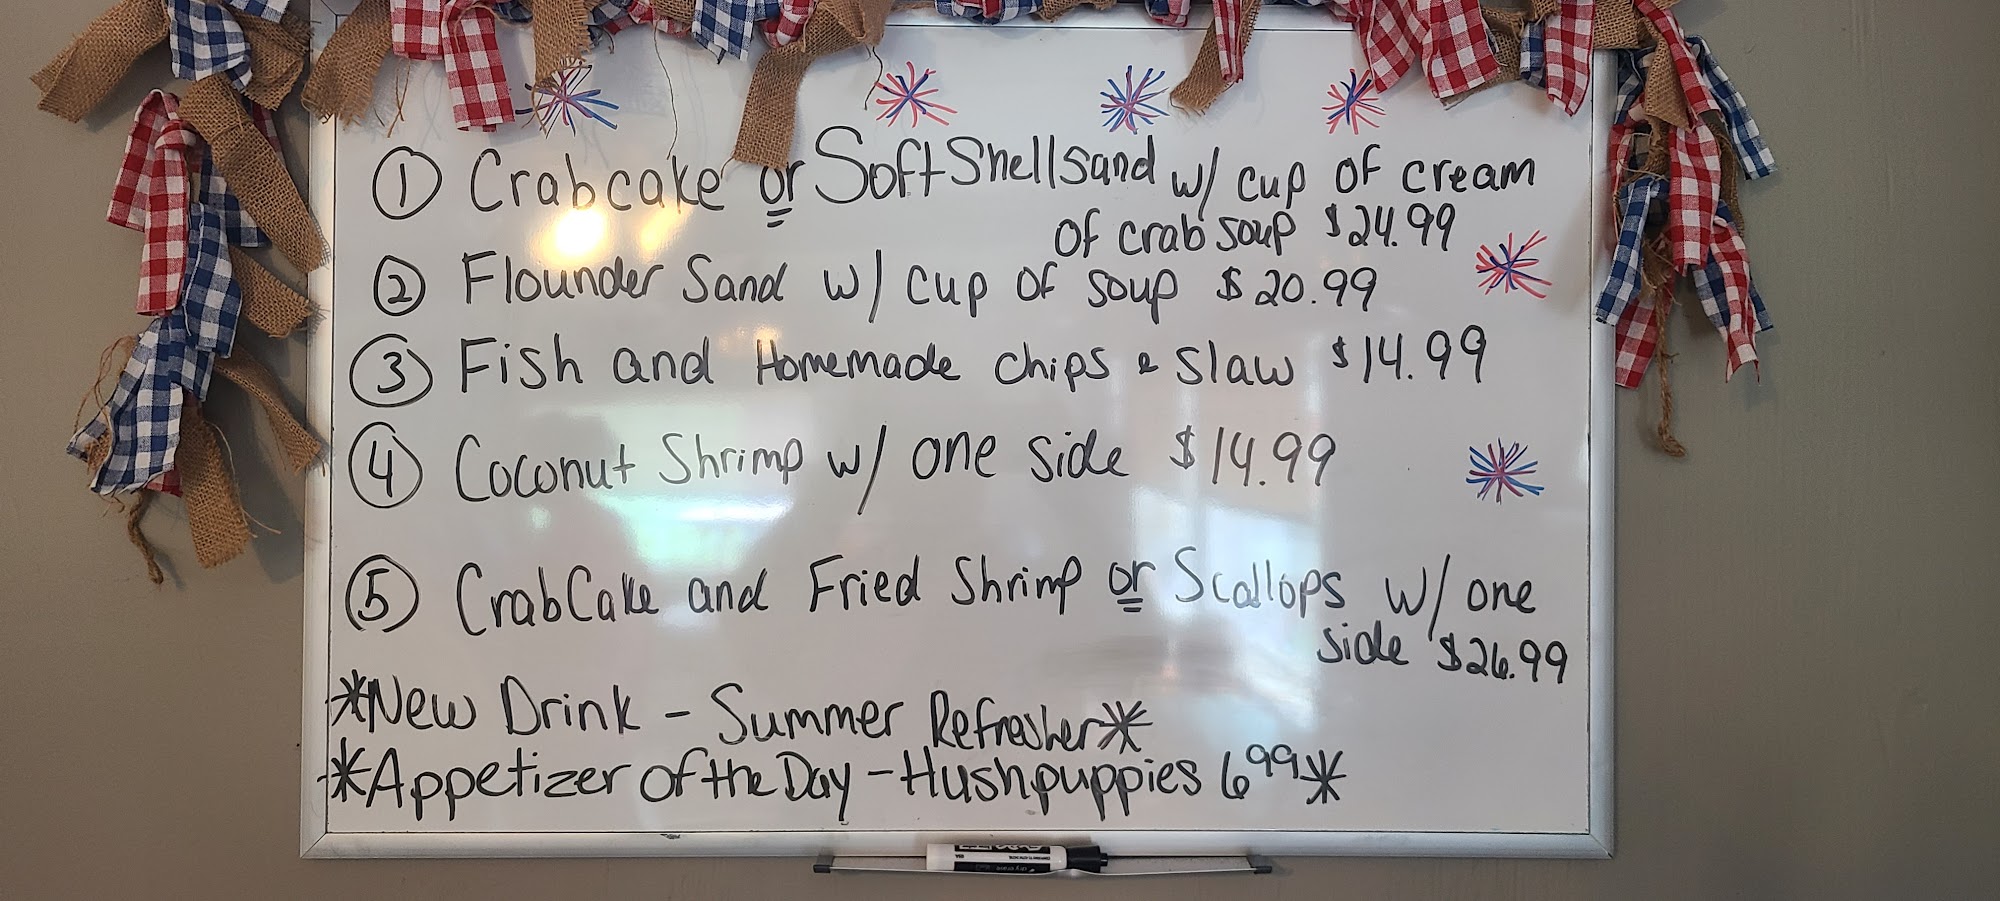 ① Crabcake or Soft Shell Sand w/ cup of cream
of crab soup $24.99
② Flounder Sand w/ cup of soup $20.99
③ Fish and Homemade chips & slaw $14.99
④ Coconut Shrimp w/ one side $14.99
⑤ CrabCake and Fried Shrimp or Scallops w/ one
side $26.99
*New Drink - Summer Refresher*
*Appetizer of the Day - Hushpuppies 6.99*